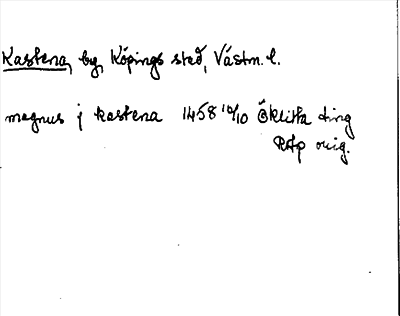 Kastena, by, Köpings stad, Västm. l.
magnus j kastena 1458 10/10 Öklista ting
RAp orig.